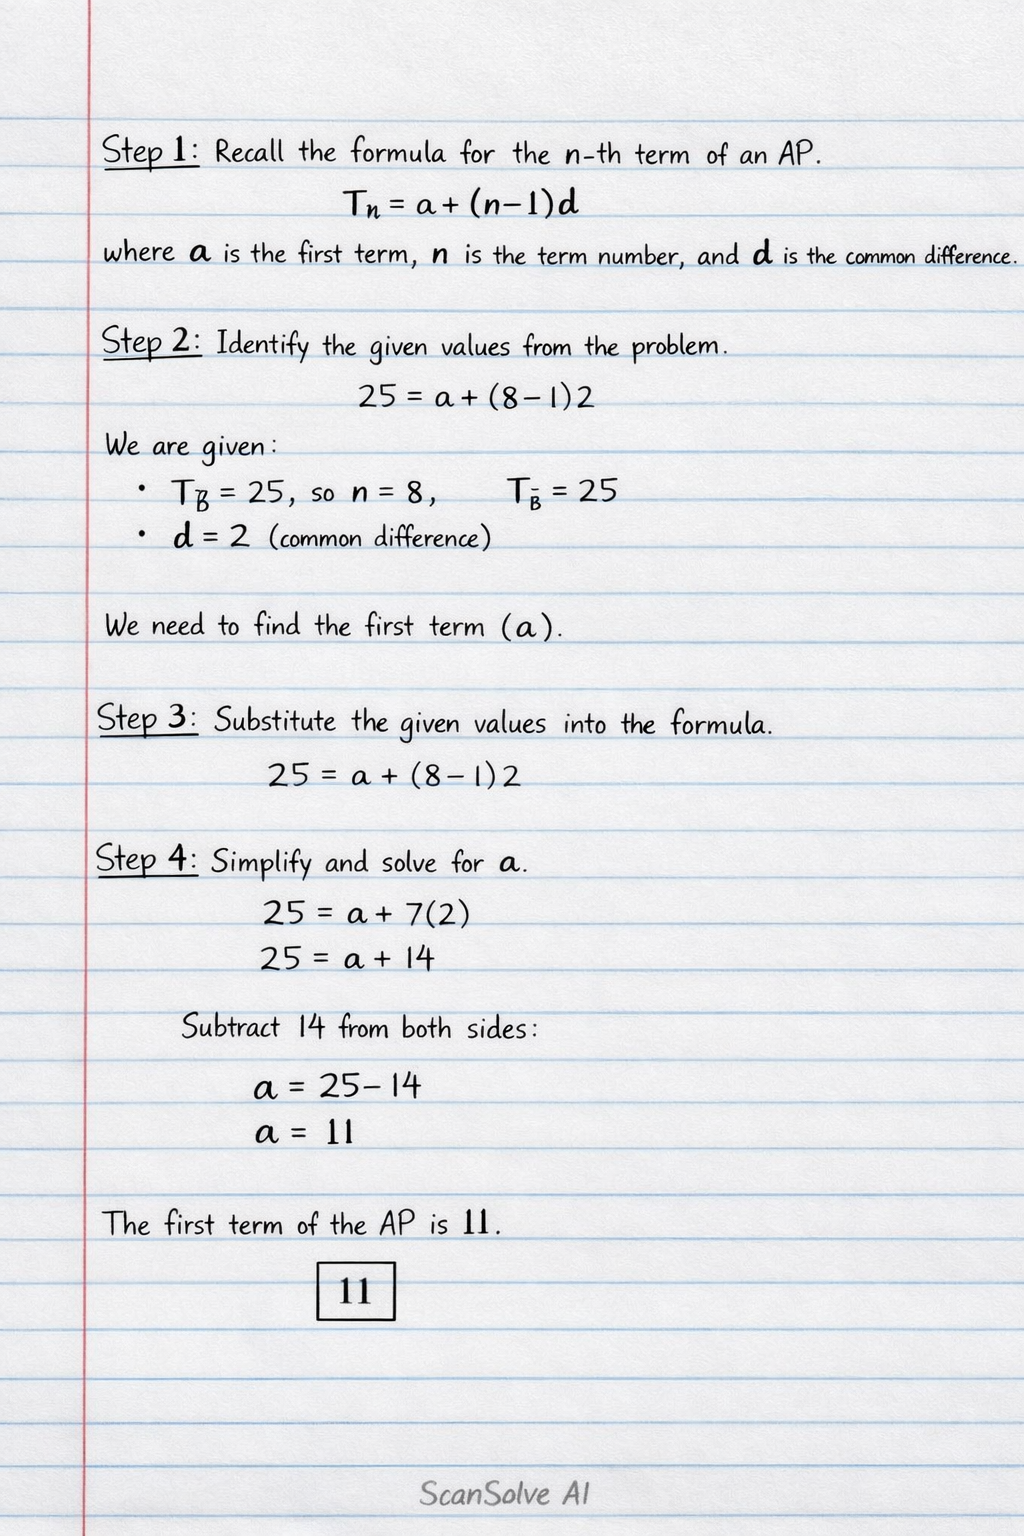 Step 1: Recall the formula for the n-th term of an AP.
Tn = a + (n-1)d
where a is the first term, n is the term number, and d is the common difference.
Step 2: Identify the given values from the problem.
25 = a + (8-1)2
We are given:
• TB = 25, so n = 8, TB = 25
• d = 2 (common difference)
We need to find the first term (a).
Step 3: Substitute the given values into the formula.
25 = a + (8-1)2
Step 4: Simplify and solve for a.
25 = a + 7(2)
25 = a + 14
Subtract 14 from both sides:
a = 25-14
a = 11
The first term of the AP is 11.
11
ScanSolve AI